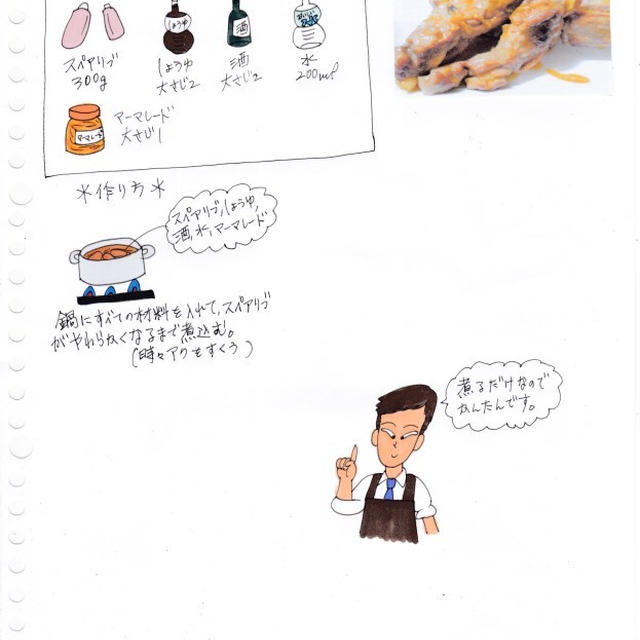 しょうゆ
酒
スペアリブ
300g
しょうゆ
大さじ2
酒
大さじ2
水
200ml
マーマレード
マーマレード
大さじ1
*作り方*
スペアリブ,しょうゆ,
酒,水,マーマレード
鍋にすべての材料を入れて、スペアリブ
がやわらかくなるまで煮込む。
(時々アクをすくう)
煮るだけなので
かんたんです。